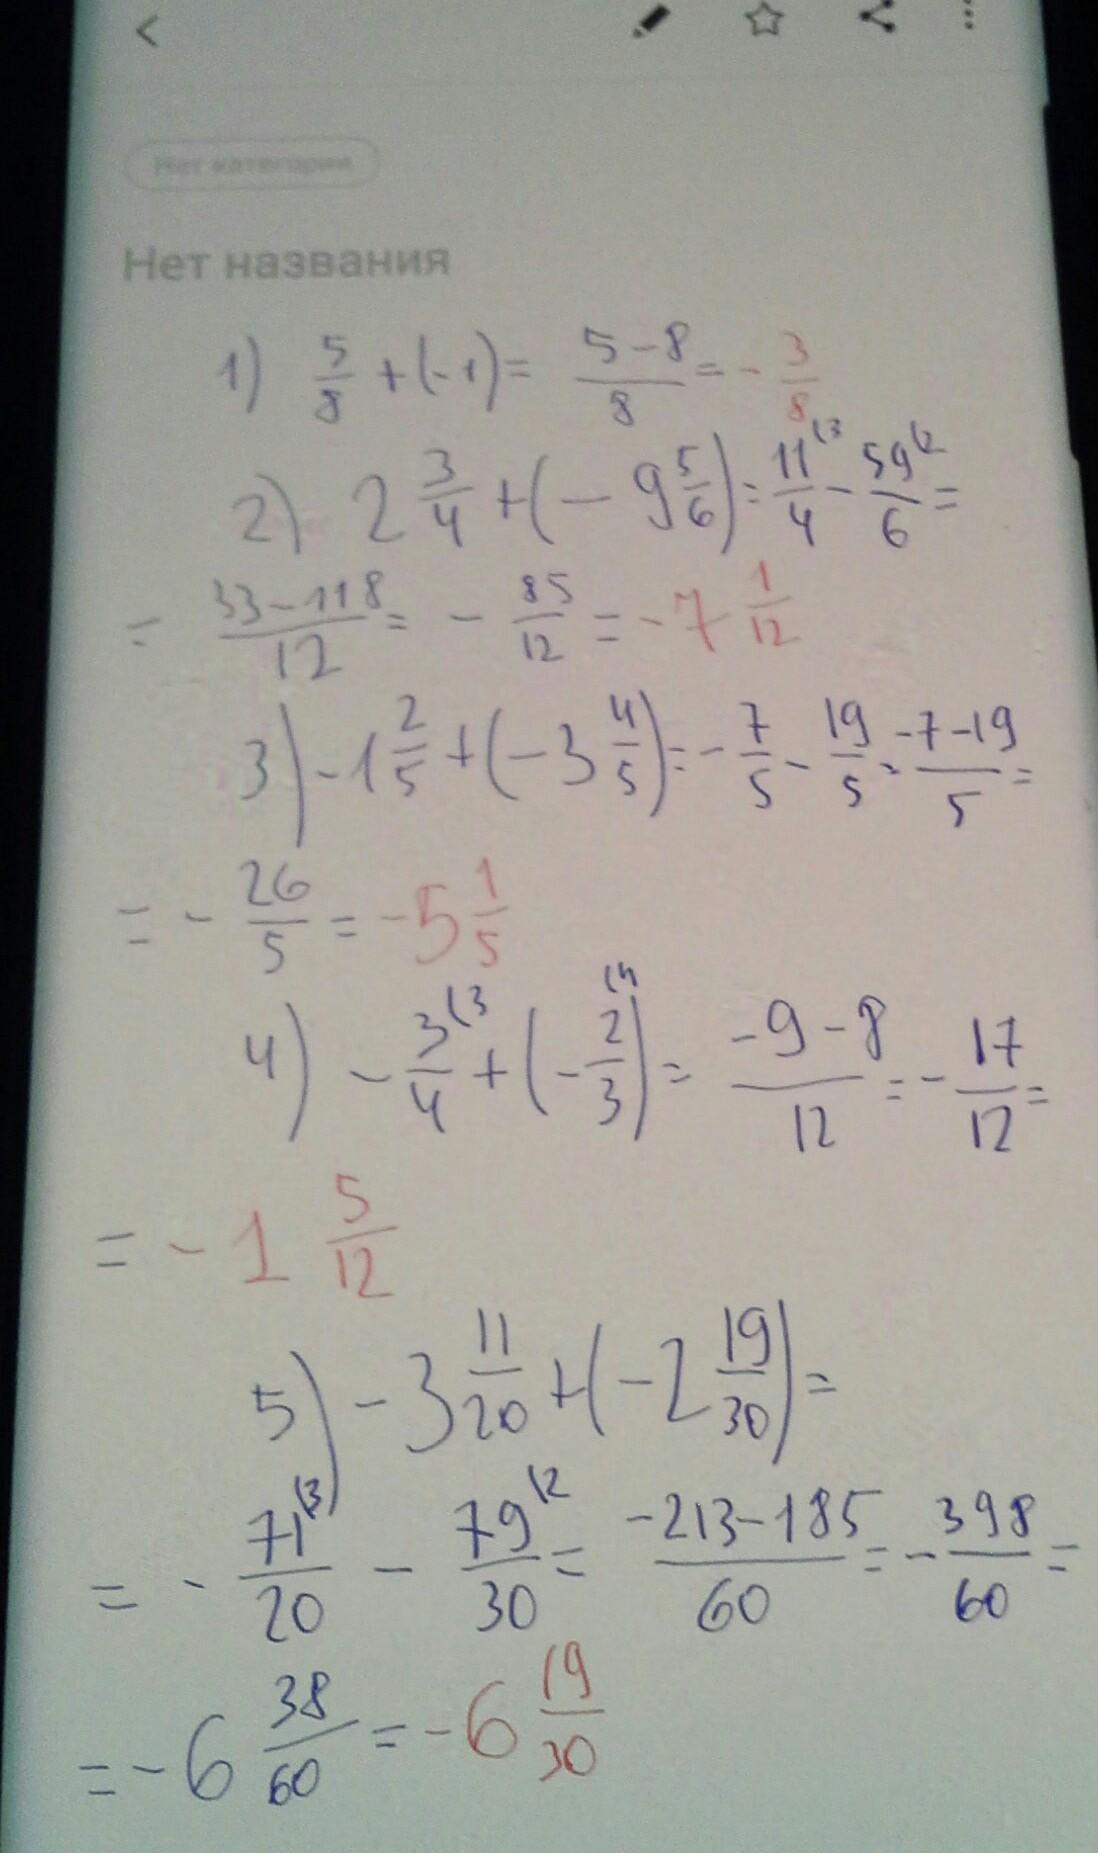 Нет категории
Нет названия
1) 5/8 + (-1) = 5-8/8 = - 3/8
2) 2 3/4 + (- 9 5/6) = 11(3/4 - 59(2/6 =
= 33-118/12 = - 85/12 = -7 1/12
3) -1 2/5 + (-3 4/5) = - 7/5 - 19/5 = -7-19/5 =
= - 26/5 = -5 1/5
4) - 3(3/4 + (- 2(4/3) = -9-8/12 = - 17/12 =
= -1 5/12
5) -3 11/20 + (-2 19/30) =
= - 71(3/20 - 79(2/30 = -213-185/60 = - 398/60 =
= -6 38/60 = -6 19/30